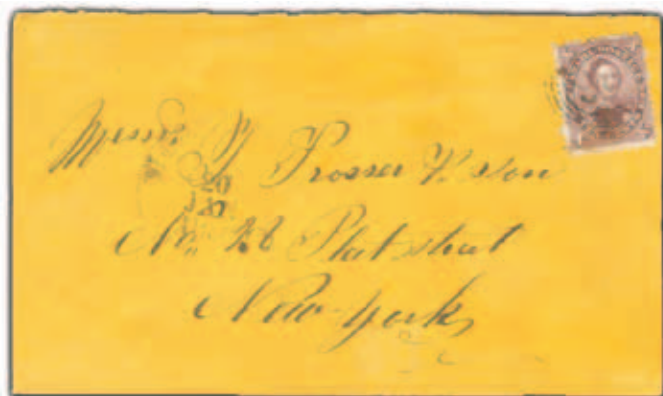 Messrs. T Prosser & Son
No. 28 Platt street
New-York